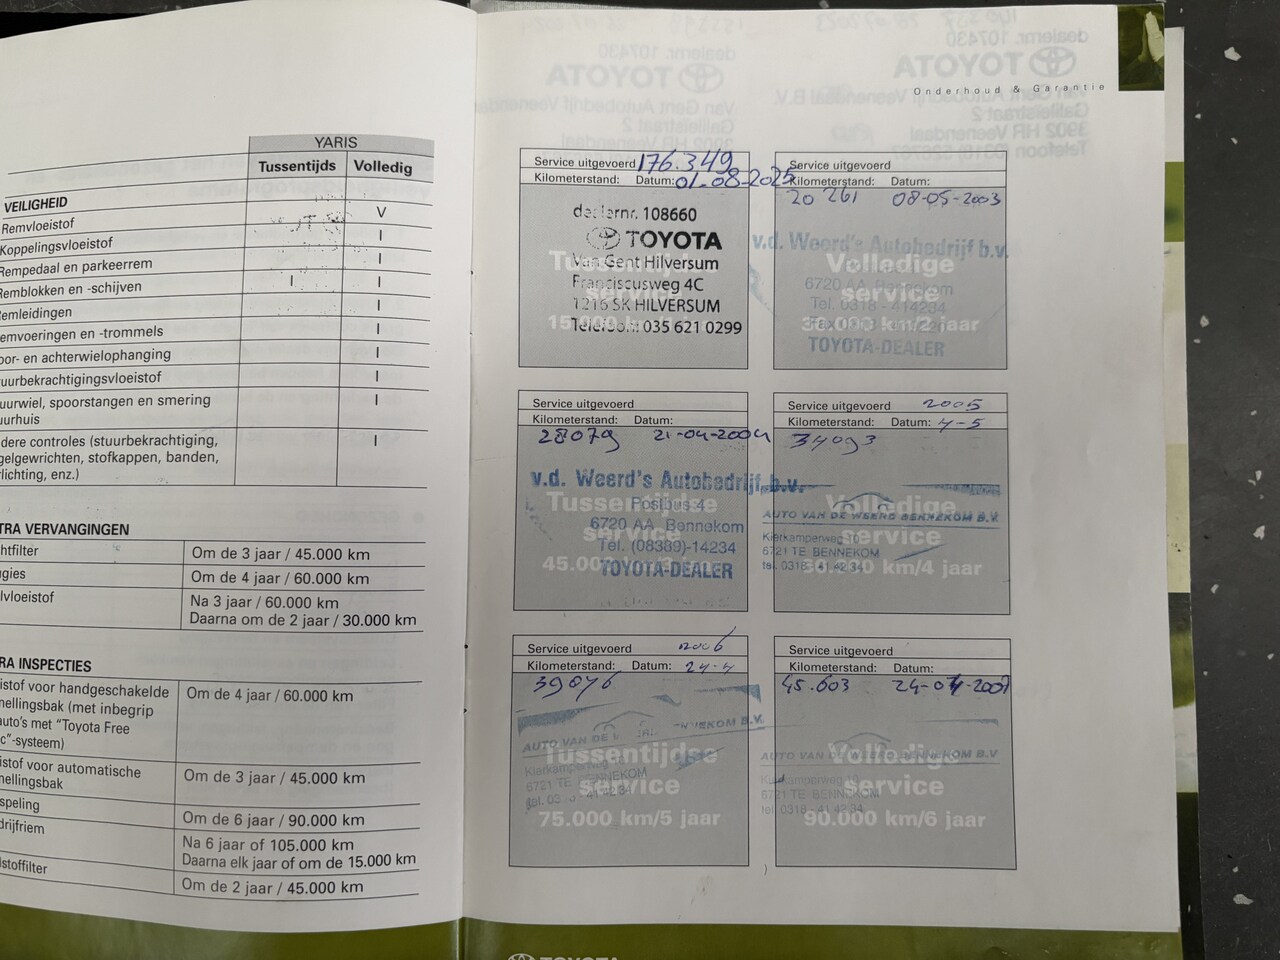 Onderhoud & Garantie
YARIS
Tussentijds Volledig
VEILIGHEID
Remvloeistof V
Koppelingsvloeistof I
Rempedaal en parkeerrem I
Remblokken en -schijven I I
emleidingen I
emvoeringen en -trommels I
oor- en achterwielophanging I
uurbekrachtigingsvloeistof I
uurwiel, spoorstangen en smering I
uurhuis
dere controles (stuurbekrachtiging, I
gelgewrichten, stofkappen, banden,
rlichting, enz.)
TRA VERVANGINGEN
htfilter Om de 3 jaar / 45.000 km
ugies Om de 4 jaar / 60.000 km
lvloeistof Na 3 jaar / 60.000 km
Daarna om de 2 jaar / 30.000 km
RA INSPECTIES
istof voor handgeschakelde Om de 4 jaar / 60.000 km
nellingsbak (met inbegrip
auto's met "Toyota Free
c"-systeem)
istof voor automatische Om de 3 jaar / 45.000 km
nellingsbak
speling Om de 6 jaar / 90.000 km
drijfriem Na 6 jaar of 105.000 km
Daarna elk jaar of om de 15.000 km
lstoffilter Om de 2 jaar / 45.000 km
Service uitgevoerd 176.349
Kilometerstand: Datum: 01-08-2025
dealernr. 108660
TOYOTA
Van Gent Hilversum
Franciscusweg 4C
1216 SK HILVERSUM
Telefoon: 035 621 0299
Tussentijdse
service
Service uitgevoerd
Kilometerstand: Datum:
20 261 08-05-2003
v.d. Weerd's Autobedrijf b.v.
6720 AA Bennekom
Tel. 0318 - 414234
TOYOTA-DEALER
Volledige
service
30.000 km/2 jaar
Service uitgevoerd
Kilometerstand: Datum:
28079 21-04-2004
v.d. Weerd's Autobedrijf b.v.
Postbus 4
6720 AA Bennekom
Tel. (08389)-14234
TOYOTA-DEALER
Tussentijdse
service
45.000 km/3 jaar
Service uitgevoerd 2005
Kilometerstand: Datum: 4-5
34093
AUTO VAN DE WEERD BENNEKOM B.V.
Kierkamperweg 10
6721 TE BENNEKOM
tel. 0318 - 41 42 34
Volledige
service
60.000 km/4 jaar
Service uitgevoerd 2006
Kilometerstand: Datum: 24-4
39076
AUTO VAN DE BENNEKOM B.V.
Kierkamperweg
6721 TE BENNEKOM
Tussentijdse
service
75.000 km/5 jaar
Service uitgevoerd
Kilometerstand: Datum:
45.603 24-04-2007
AUTO VAN DE WEERD BENNEKOM B.V.
Kierkamperweg 10
6721 TE BENNEKOM
tel. 0318 - 41 42 34
Volledige
service
90.000 km/6 jaar
TOYOTA